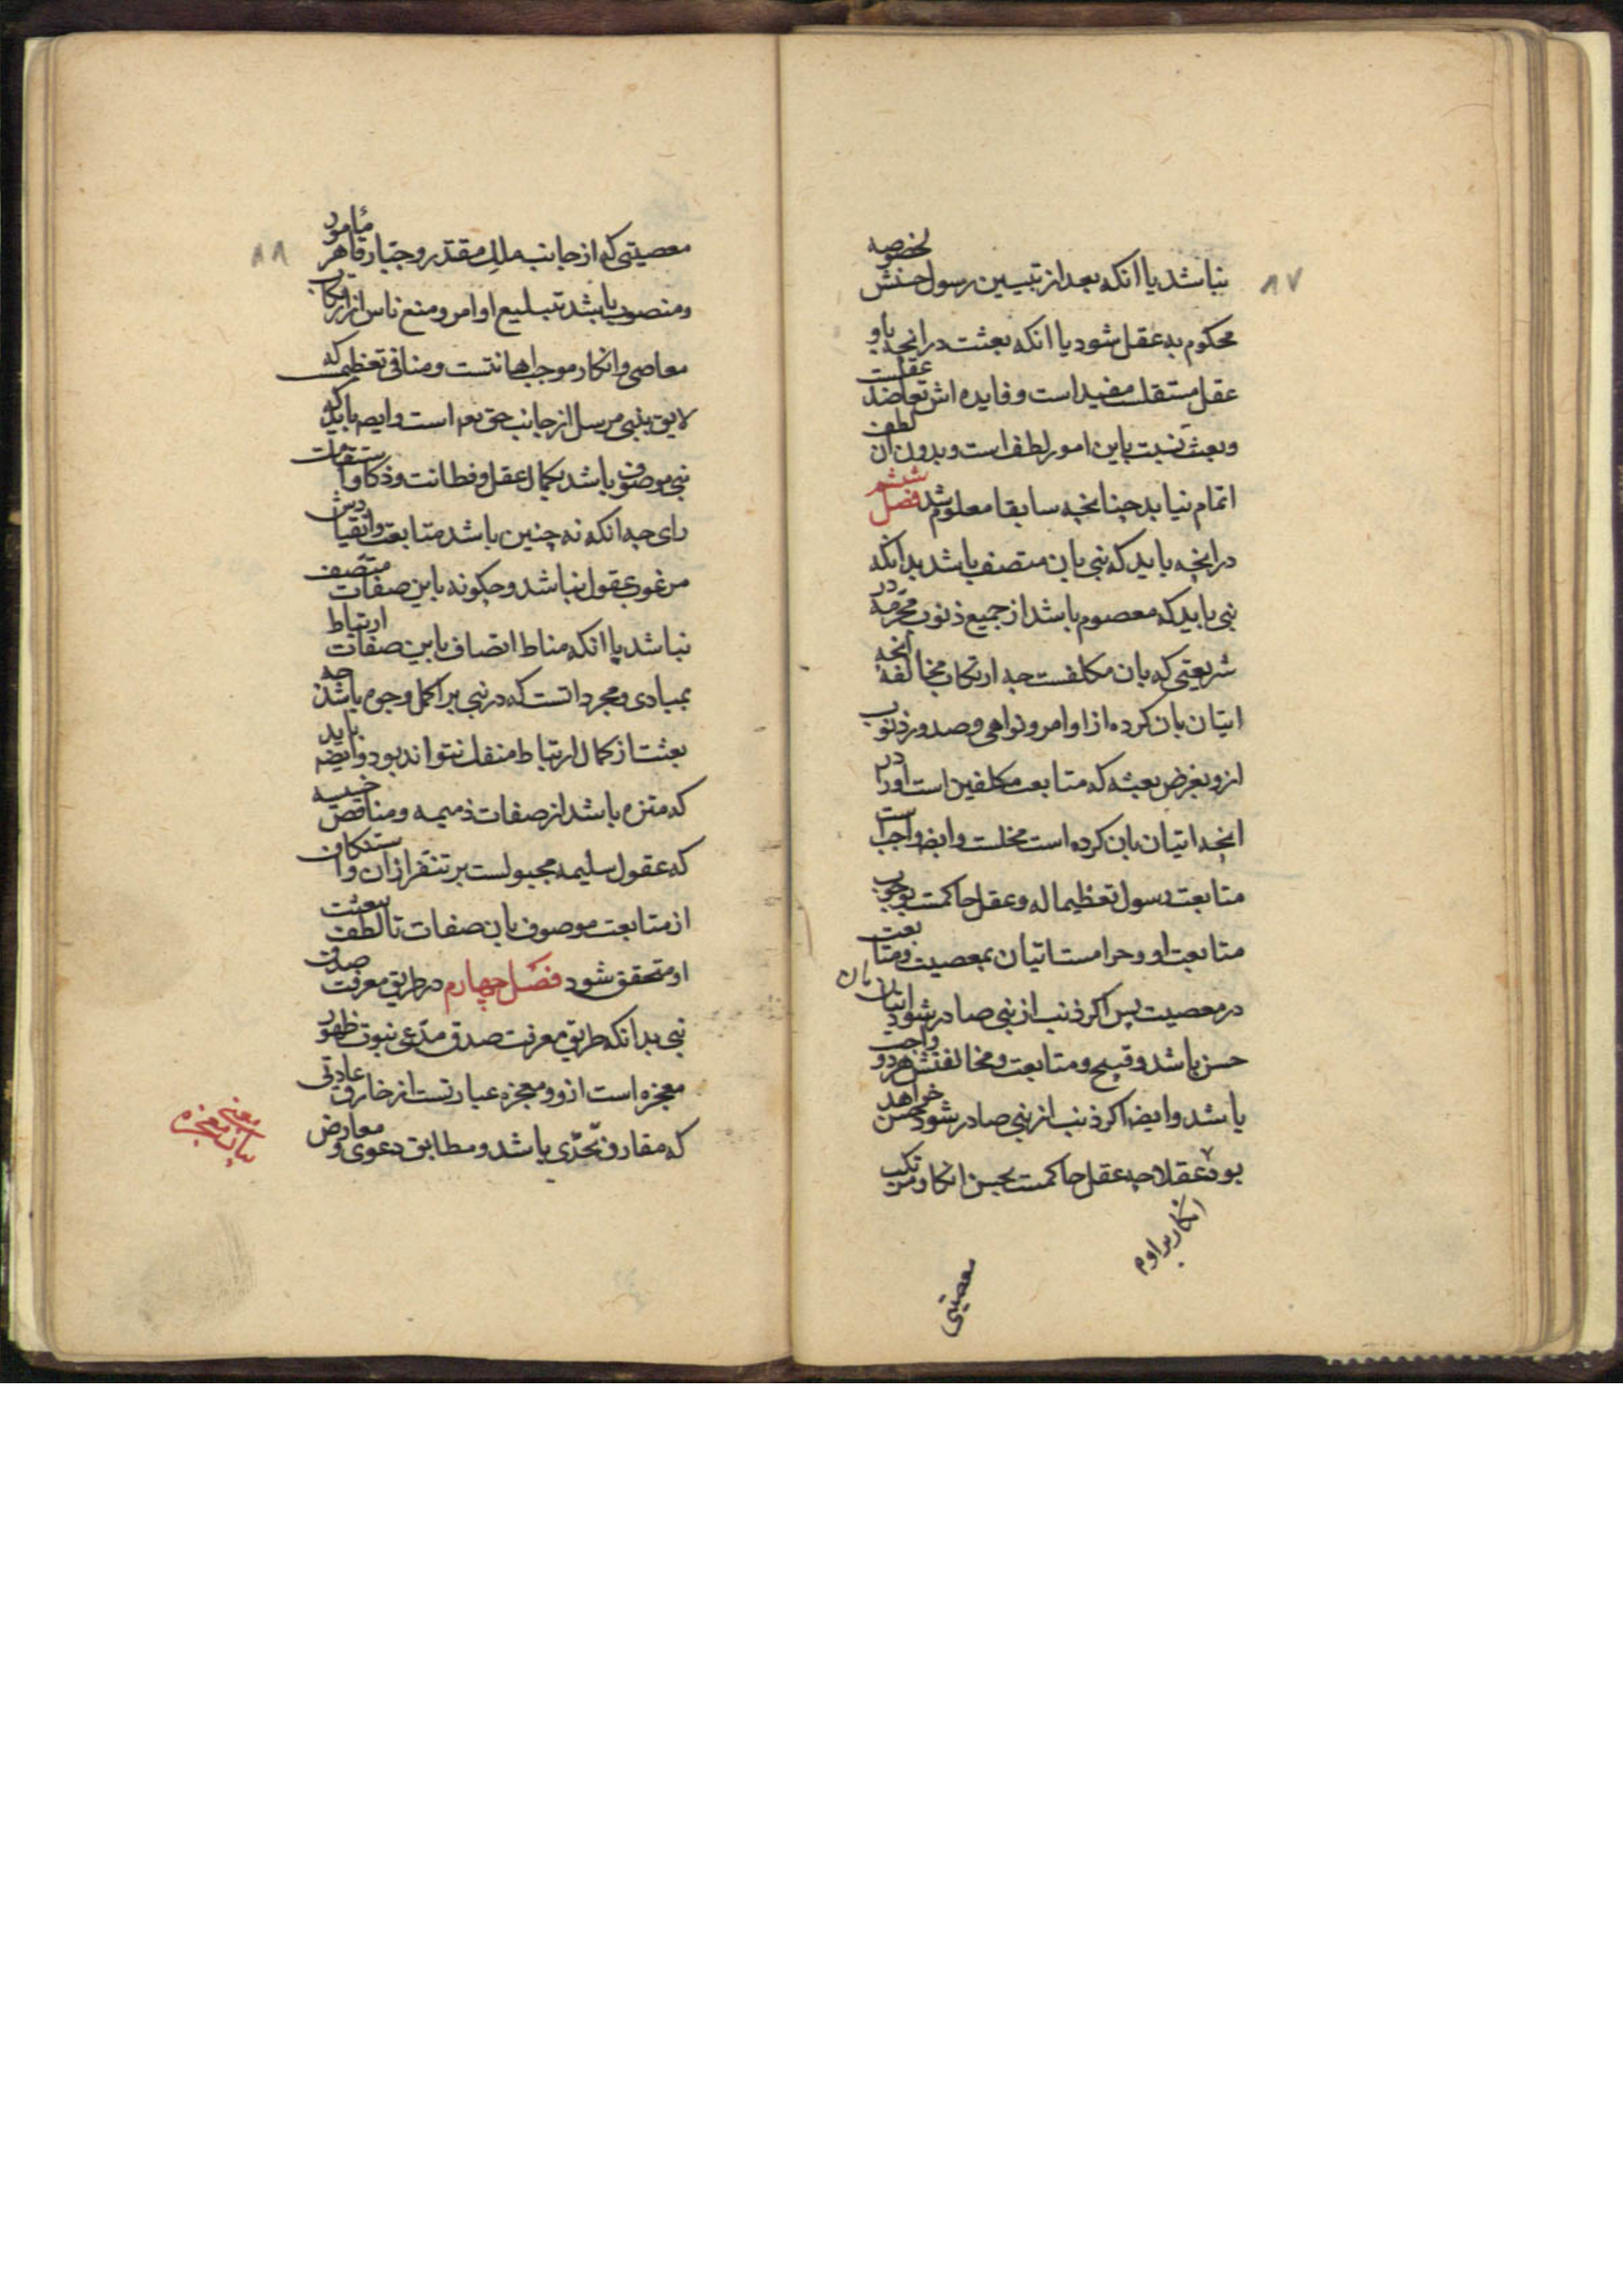 ۸۷
نباشد یا انکه بعد از تبیین رسول حسنش بخصوصه
محکوم به عقل شود یا انکه بعثت در انچه باو
عقل مستقلست مفید است و فایده اش تعاضد عقلست
و بعثت نسبت باین امور لطف است و بدون ان لطف
اتمام نیابد چنانچه سابقا معلوم شد فصل ششم
در انچه باید که نبی بان متصف باشد بدانکه
نبی باید که معصوم باشد از جمیع ذنوب محرمه در
شریعتی که بان مکلفست چه ارتکاب مخالفه انچه
اتیان بان کرده از اوامر و نواهی و صدور ذنوب
ازو بغرض بعثه که متابعت مکلفین است او را در
انچه اتیان بان کرده است مخلست و ایضا واجب است
متابعت رسول تعظیما له و عقل حاکمست بوجوب
متابعت او و حرامست اتیان بمعصیت و متابعت
در معصیت پس اکر ذنب از نبی صادر شود اتیان بان
حسن باشد و قبیح و متابعت و مخالفتش هر دو واجب
باشد و ایضا اکر ذنب از نبی صادر شود حسن خواهد
بود عقلا چه عقل حاکمست بحسن انکار مرتکب
انکار بر او م
معصیتی
۸۸
معصیتی که از جانب ملک مقتدر و جبار قاهر مأمور
و منصوب باشد تبلیغ اوامر و منع ناس از ارتکاب
معاصی و انکار موجب اهانتست و منافی تعظیمست که
لایق بنبی مرسل از جانب حق تعم است و ایضا باید که
نبی موصوف باشد بکمال عقل و فطانت و ذکا و استقامت
رای چه انکه نه چنین باشد متابعت و انقیادش
مرغوب عقول نباشد و چکونه باین صفات متصف
نباشد با انکه مناط اتصاف باین صفات ارتباط
بمبادی و مجرداتست که در نبی بر اکمل وجوه باشد چه
بعثت از کمال ارتباط منفک نتواند بود و ایضا باید
که متنزه باشد از صفات ذمیمه و مناقص خسیسه
که عقول سلیمه مجبولست بر تنفر از ان و استنکاف
از متابعت موصوف بان صفات تا لطف بعثت
او متحقق شود فصل چهارم در طریق معرفت صدق
نبی بدانکه طریق معرفت صدق مدعی نبوت ظهور
معجزه است ازو و معجزه عبارتست از خارق عادتی
که مقارن تحدی باشد و مطابق دعوی و معارض
بیان معنی معجزه